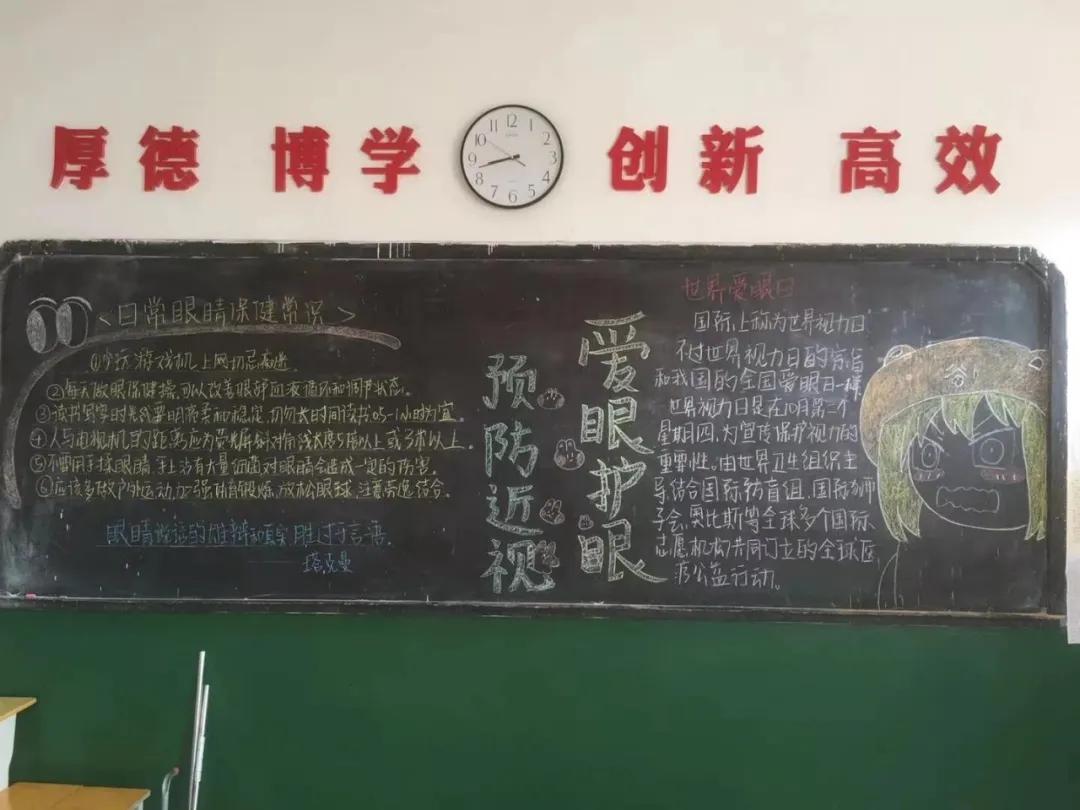 厚德 博学 创新 高效
12
11 1
10 2
9 3
8 4
7 5
6
<日常眼睛保健常识>
①少玩游戏机上网切忌
②每天做眼保健操,可以改善眼部血液循环和调节状态。
③读书写字时光线要明亮柔和稳定,切勿长时间读书0.5-1小时为宜
④人与电视机的距离应为荧光屏对角线长度5倍以上或3米以上.
⑤不要用手揉眼睛,手上沾有大量细菌对眼睛会造成一定的伤害。
⑥应该多做户外运动,加强体育锻炼,放松眼球,注意劳逸结合。
眼睛说话的雄辩和真实,胜过于言语.
——塔克曼
预防近视
爱眼护眼
世界爱眼日
国际上称为世界视力日
不过世界视力日的宗旨
和我国的全国爱眼日一样
世界视力日是在10月第二个
星期四,为宣传保护视力的
重要性。由世界卫生组织主
导结合国际防盲组、国际狮
子会、奥比斯等全球多个国际
志愿机构共同订立的全球医
疗公益行动。